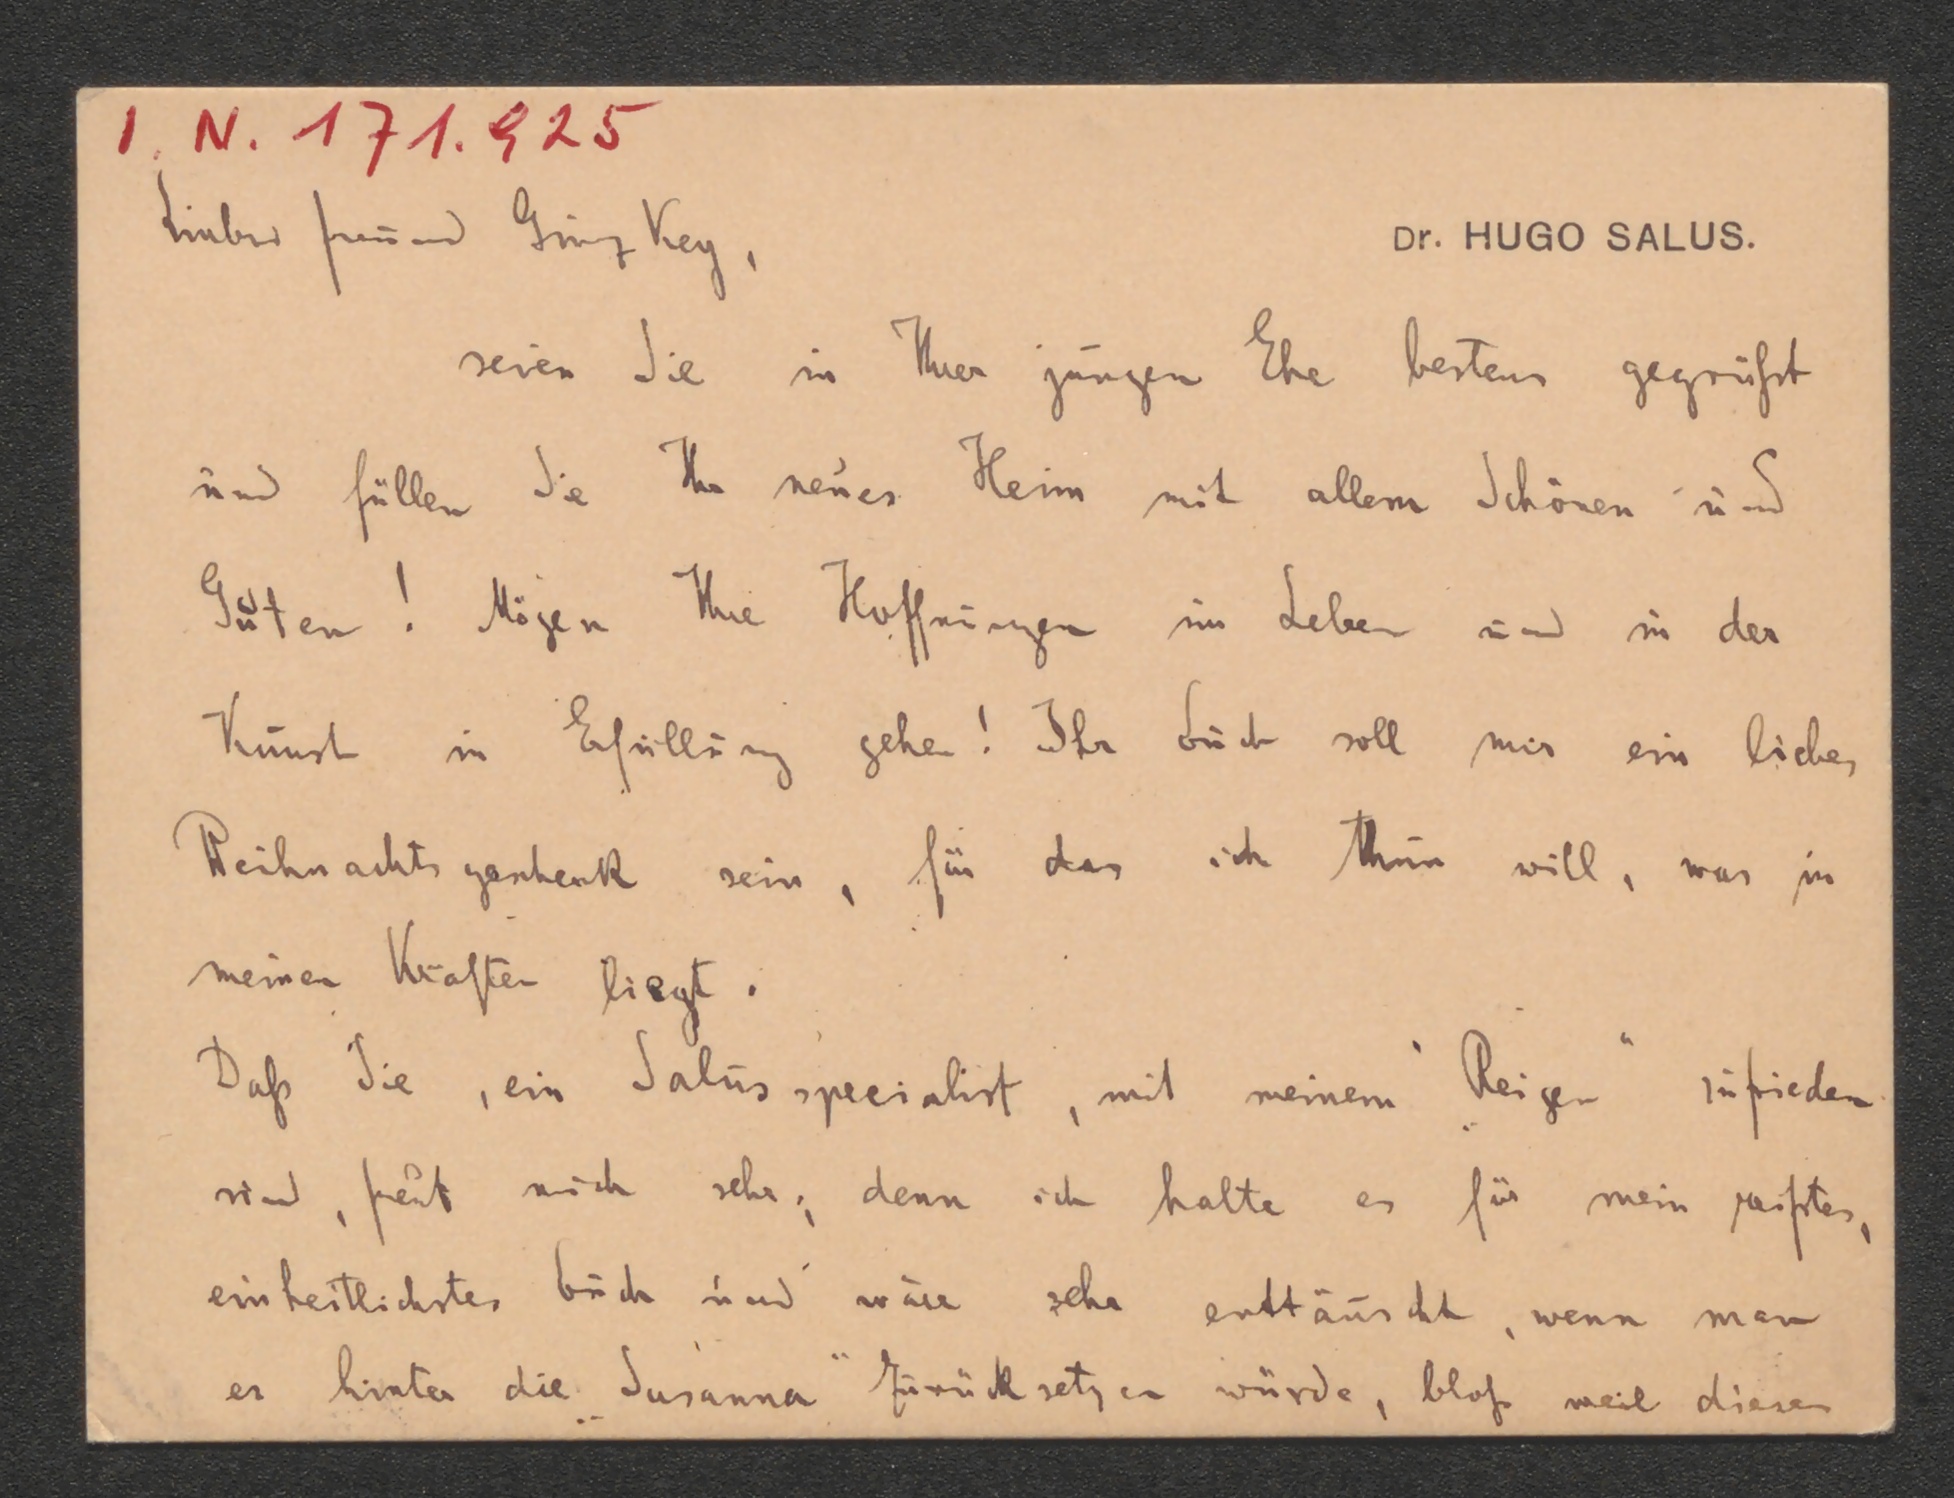 I. N. 171.925
Lieber Freund Ginzkey,
Dr. HUGO SALUS.
seien Sie in Ihrer jungen Ehe bestens gegrüßt
und füllen Sie Ihr neues Heim mit allem Schönen und
Guten! Mögen Ihre Hoffnungen im Leben und in der
Kunst in Erfüllung gehen! Ihr Buch soll mir ein liebes
Weihnachtsgeschenk sein, für das ich thun will, was in
meinen Kräften liegt.
Daß Sie, ein Salusspecialist, mit meinem „Reigen“ zufrieden
sind, freut mich sehr; denn ich halte es für mein reifstes,
einheitlichstes Buch und wäre sehr enttäuscht, wenn man
es hinter die „Susanna“ zurücksetzen würde, bloß weil dieses